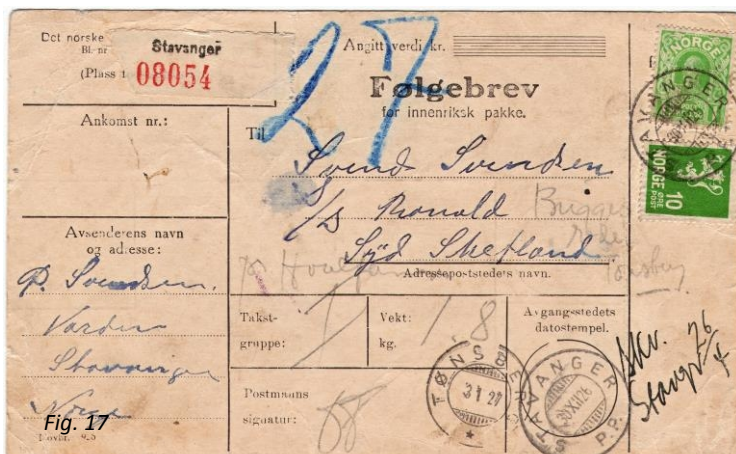 Det norske
Bl. nr
(Plass
Stavanger
08054
Angitt verdi kr.
27
Følgebrev
for innenriksk pakke.
Ankomst nr.:
Til
Svend Svendsen
S/S Ronald
Syd Shetland
Tønsberg
Adressepoststedets navn.
Avsenderens navn
og adresse:
P. Svendsen
Varden
Stavanger
Norge
Takst-
gruppe:
I
Vekt:
kg.
1,8
Avgangsstedets
datostempel.
Postmanns
signatur:
TØNSBERG
3 1 27
STAVANGER
30 XII 26
P.P.
NORGE
STAVANGER
NORGE
10
ØRE
POST
Fig. 17